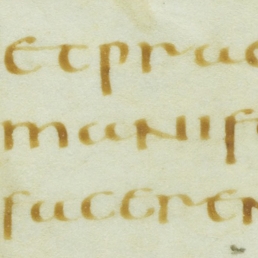 etprae
manif
facere